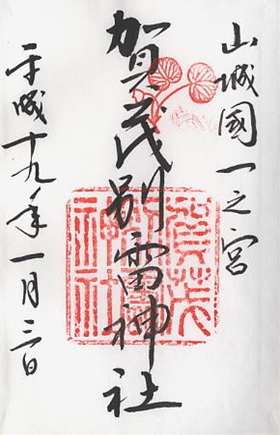 山城國一之宮
賀茂別雷神社
平成十九年一月三日
賀茂別雷神社